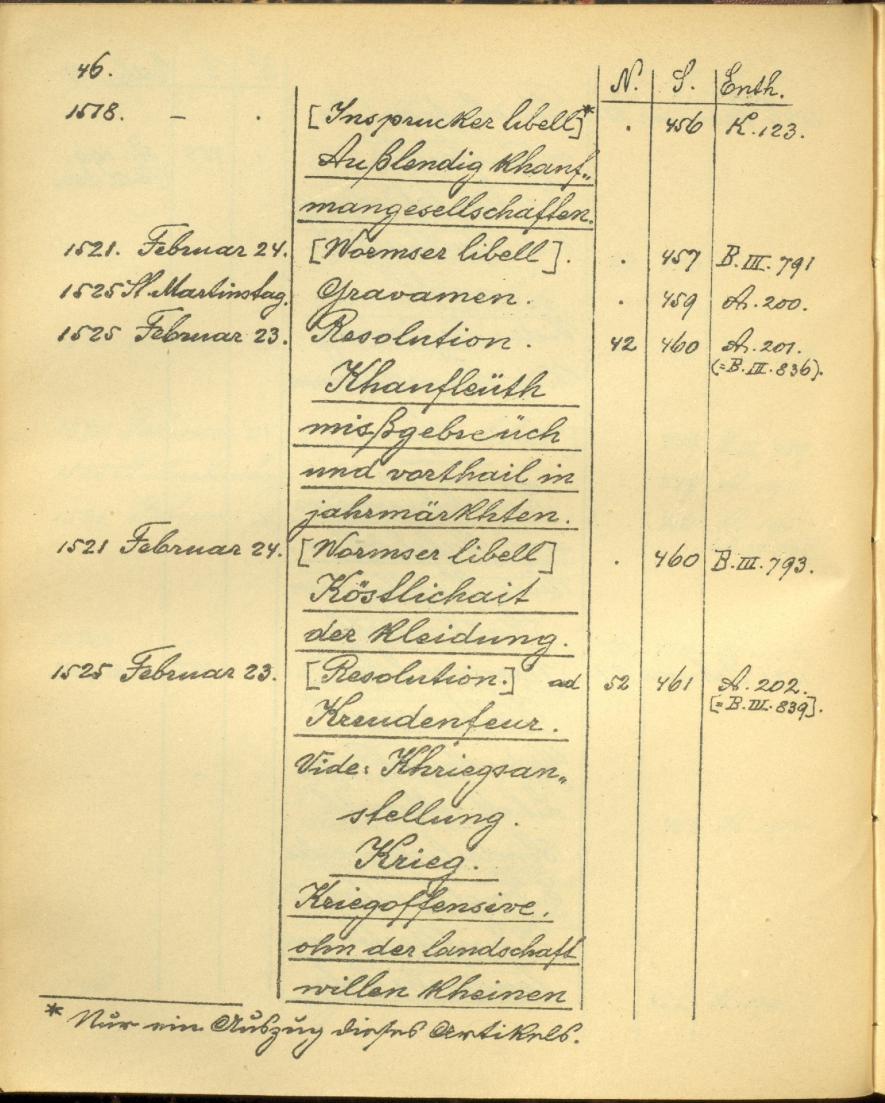 46.
N. S. Enth.
1518. – . [Insprucker libell]* . 456 K. 123.
Außlendig khauf„
mangesellschaften.
1521. Februar 24. [Wormser libell]. . 457 B. III. 791
1525 St. Martinstag. Gravamen. . 459 A. 200.
1525 Februar 23. Resolution. 42 460 A. 201.
(=B. III. 836).
Khaufleüth
mißgebreüch
und vorthail in
jahrmärkhten.
1521 Februar 24. [Wormser libell] . 460 B. III. 793.
Köstlichait
der kleidung.
1525 Februar 23. [Resolution.] ad 52 461 A. 202.
[=B. III. 839].
Kreudenfeur.
Vide: Khriegsan„
stellung.
Krieg.
Kriegoffensive.
ohn der landschaft
willen kheinen
* Nur ein Auszug dieses Artikels.